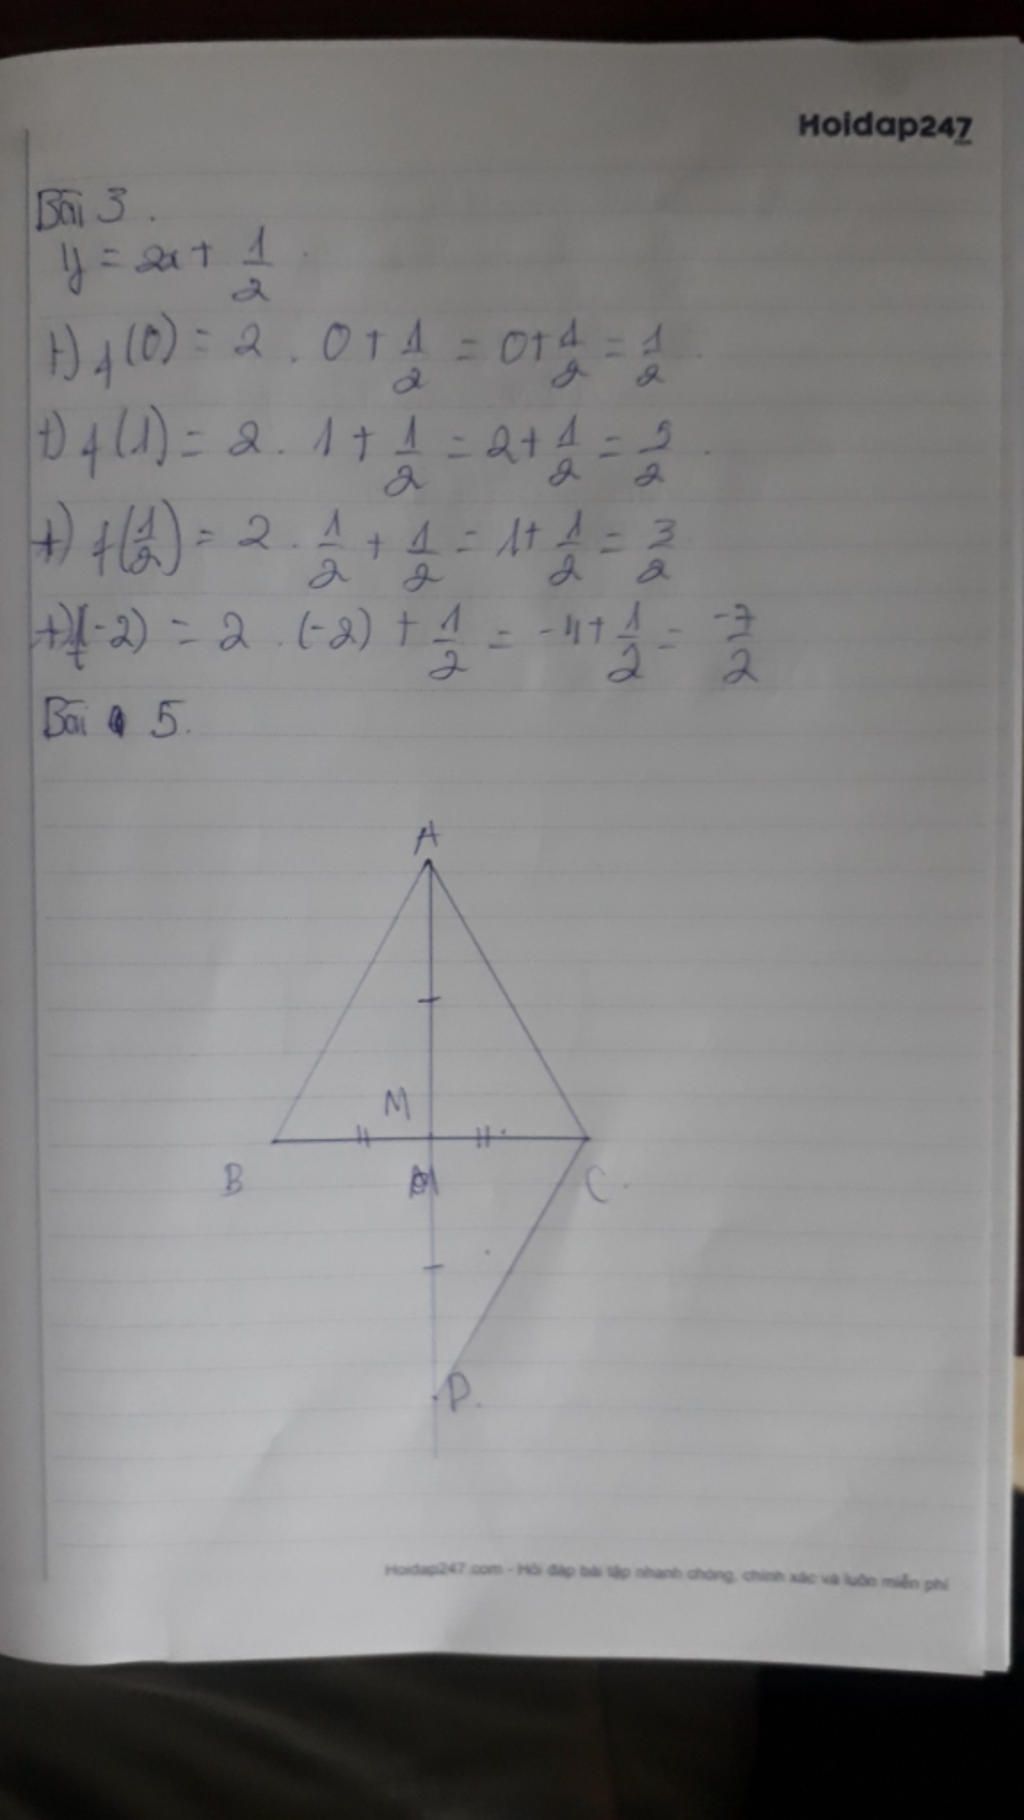 Hoidap247
.com
Bài 3.
y = 2x + 1/2
+) f(0) = 2 . 0 + 1/2 = 0 + 1/2 = 1/2.
+) f(1) = 2 . 1 + 1/2 = 2 + 1/2 = 5/2.
+) f(1/2) = 2 . 1/2 + 1/2 = 1 + 1/2 = 3/2
+) f(-2) = 2 . (-2) + 1/2 = -4 + 1/2 = -7/2
Bài 5.
A
M
B
C.
D.
Hoidap247.com - Hỏi đáp bài tập nhanh chóng, chính xác và luôn miễn phí